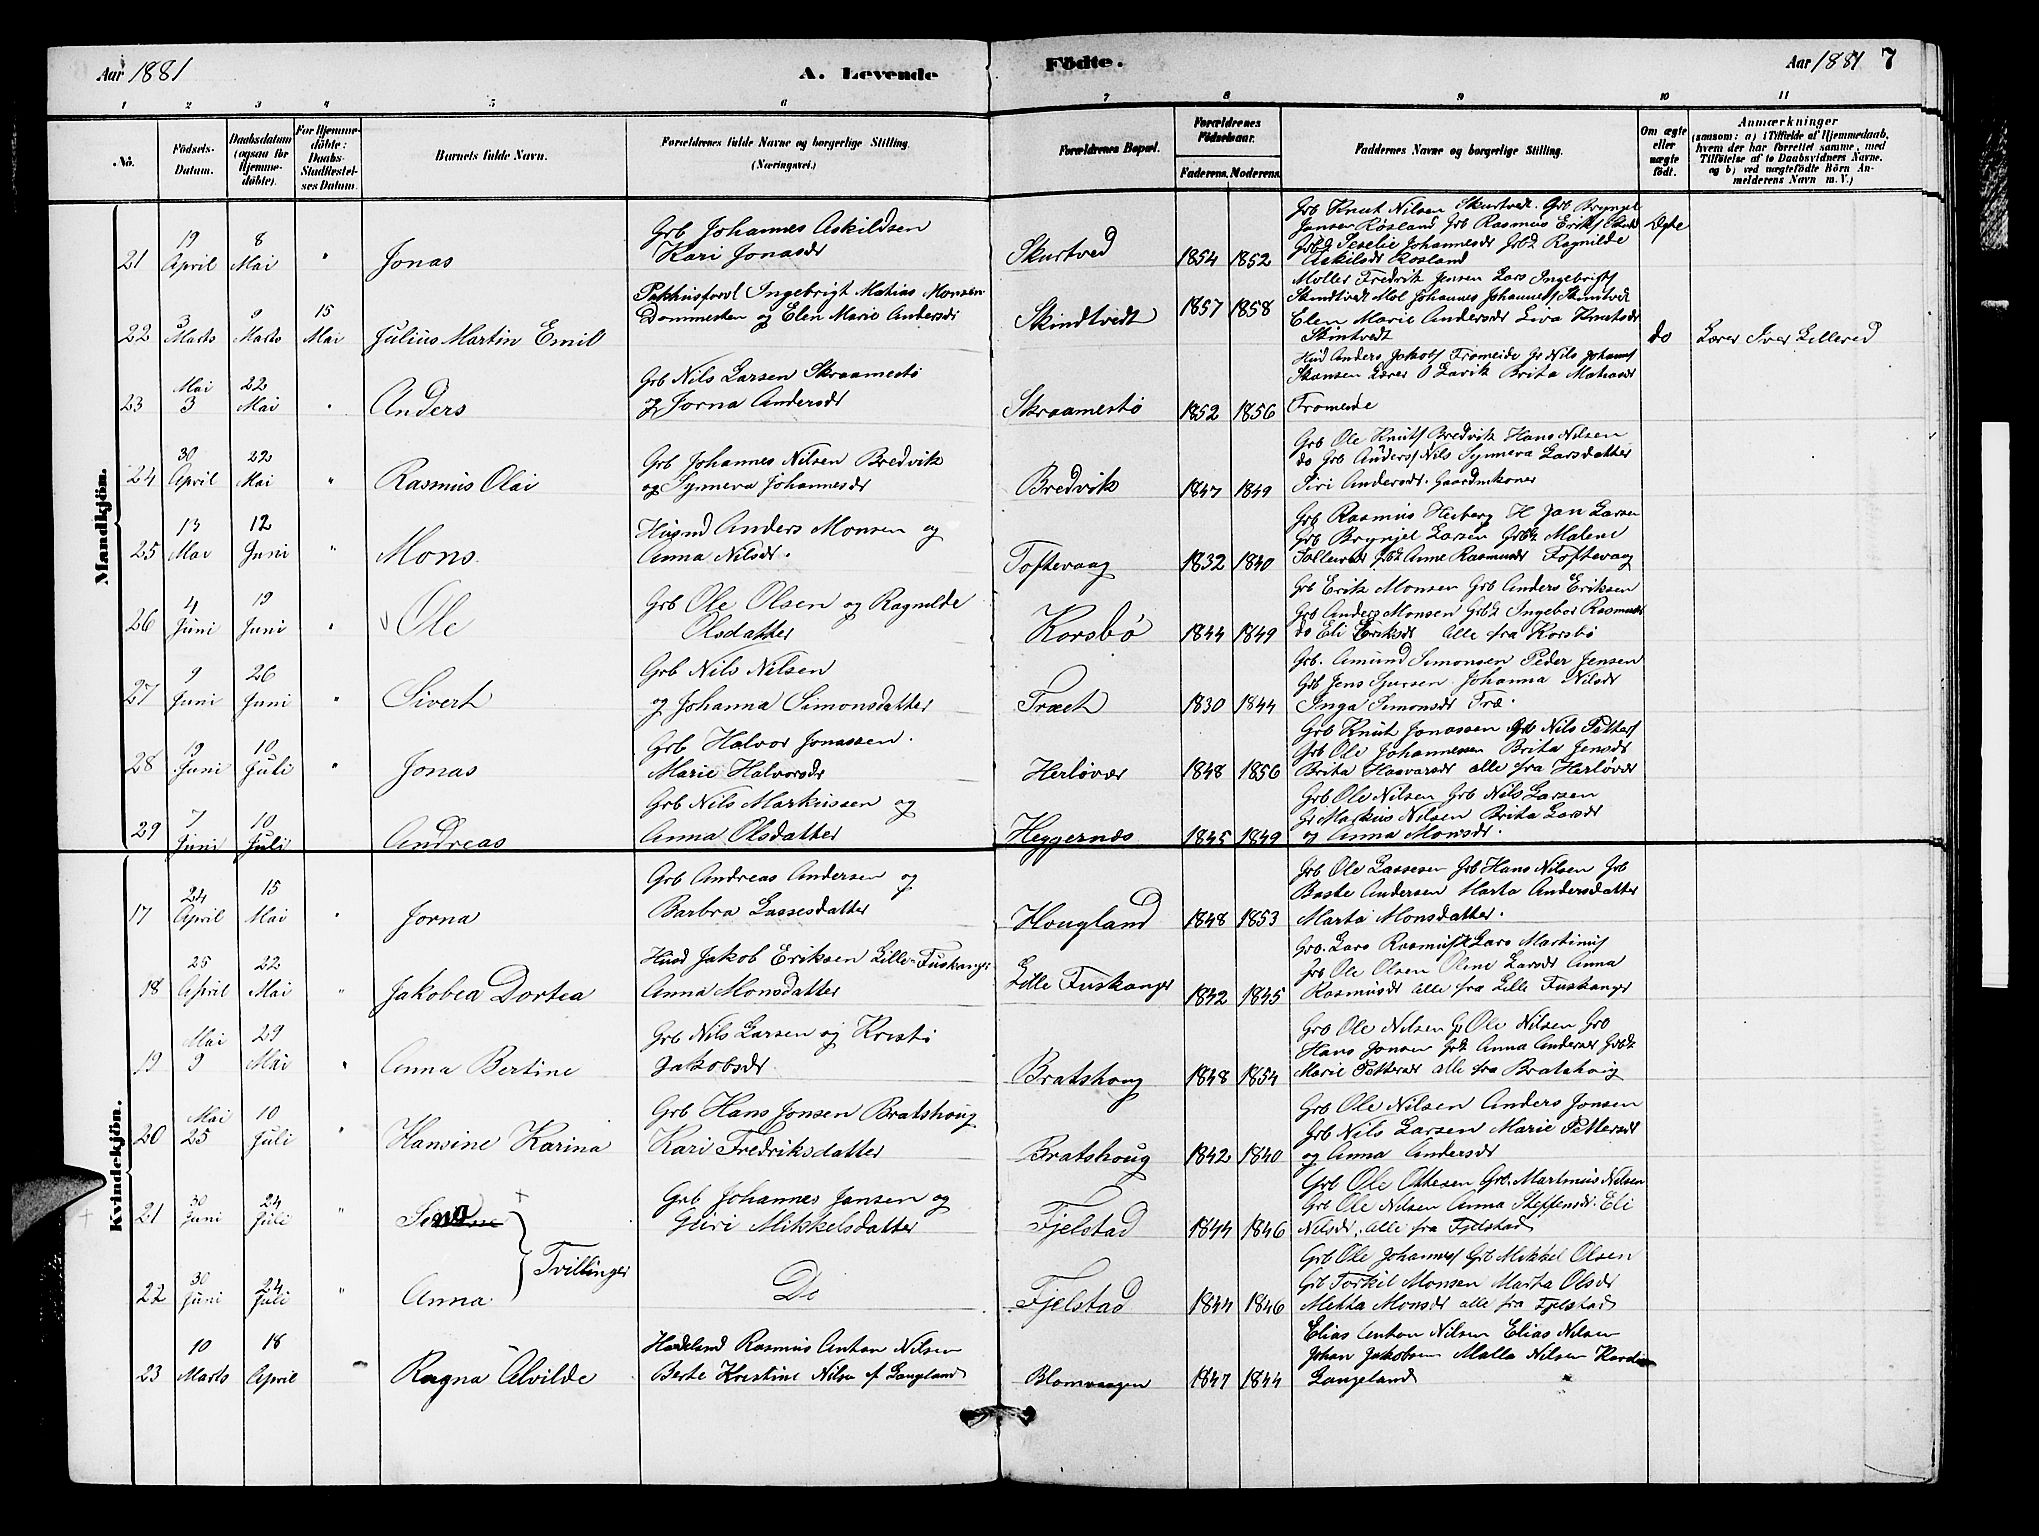 Aar 1881
A. Levende
Födte.
Aar 1881 7
1 2 3 4 5 6 7 8 9 10 11
No.
Födsels-Datum.
Daabsdatum (ogsaa for Hjemme-döbte).
For Hjemme-döbte: Daabs-Stadfæstel-ses Datum.
Barnets fulde Navn.
Forældrenes fulde Navne og borgerlige Stilling. (Næringsvei.)
Forældrenes Bopæl.
Forældrenes Födselsaar.
Faderens. Moderens.
Faddernes Navne og borgerlige Stilling.
Om ægte eller uægte födt.
Anmærkninger
(saasom: a) i Tilfælde af Hjemmedaab, hvem der har forrettet samme, med Tilföielse af to Daabsvidners Navne, og b) ved uægtefödte Börn An-melderens Navn m. V.)
Mandkjön.
21 19 April 8 Mai " Jonas
Grb Johannes Askildsen
Kari Jonasdr
Skurtved 1854 1852
Grb Knut Nilsen Skurtvedt. Grb Brynjel
Jansen Røsland Grb Rasmus Eriks
Johannesdr Grbd Ragnilde
Askilsdr Rosland
Ægte
22 3 Marts 9 Marts 15 Mai Julius Martin Emil
Ingebrigt Matias Monsen
Dommesten og Elen Marie Andersdr
Skindtvedt 1857 1858
Møller Fredrik Jensen Lars Ingebrigts
Skindtvedt Møl Johannes Johannes Skintvedt
Elen Marie Andersdr Siva Knutsdr
Skintvedt
do Lærer Iver Lillered
23 Mai 3 22 Mai " Anders
Grb Nils Larsen Skraamestø
og Jorna Andersdr
Skraamestø 1852 1856
Hud Anders Jakobs Fromeide Gr Nils Johans
Skansen Lærer O Larvik Brita Matiasdr
Fromeide
24 30 April 22 Mai " Rasmus Olai
Grb Johannes Nilsen Bredvik
og Synneva Johannesdr
Bredvik 1847 1849
Grb Ole Knuts Bredvik Hans Nilsen
do Grb Anders Nils Synneva Larsdatter
Siri Andersdr. Gaardmkoner
25 13 Mai 12 Juni " Mons.
Husmd Anders Monsen og
Anna Nilsdr.
Toftevaag 1832 1840
Grb Rasmus Heiberg H Jan Larsen
Grb Brynjel Larsen Grbk Malene
Tollevsdr Grbk Anne Rasmusdr Toftevaag
26 4 Juni 19 Juni " Ole
Grb Ole Olsen og Ragnilde
Olsdatter
Korsbø 1844 1849
Grb Erik Monsen Grb Anders Eriksen
Grb Anders Monsen Grbk Ingebor Rasmusdr
do Eli Eriksdr Alle fra Korsbø
27 9 Juni 26 Juni " Sivert
Grb Nils Nilsen
og Johanna Simonsdatter
Træet 1830 1844
Grb. Amund Simonsen Peder Jensen
Grb Jens Sjursen Johanna Nilsdr
Inga Simonsdr Træ.
28 19 Juni 10 Juli " Jonas
Grb Halvor Jonassen.
Marie Halvorsdr
Herløvær 1848 1856
Grb Knut Jonassen Grb Nils Petters
Grb Ole Johannessen Brita Jensdr
Brita Haavarsdr alle fra Herløvær
29 7 Juni 10 Juli Andreas
Grb Nils Markussen og
Anna Olsdatter
Heggernæs 1845 1849
Grb Ole Nilsen Grb Nils Larsen
Gr Markus Nilsen Brita Larsdr
og Anna Monsdr.
Kvindekjön.
17 24 April 15 Mai " Jorna
Grb Andreas Andersen og
Barbra Lassesdatter
Hougland 1848 1853
Grb Ole Lassesen Grb Hans Nilsen Grb
Baste Andersen Marta Andersdatter
Marta Monsdatter.
18 25 April 22 Mai " Jakobea Dortea
Husd Jakob Eriksen Lille-Fuskanger
Anna Monsdatter
Lille Fuskanger 1842 1845
Gro. Lars Rasmus Lars Martinus
Grb Ole Olsen Oline Larsdr Anna
Rasmusdr alle fra Lille Fuskanger
19 Mai 9 29 Mai " Anna Bertine
Grb Nils Larsen og Kristi
Jakobsdr.
Bratshoug 1848 1854
Gro Ole Nilsen G Ole Nilsen Gro
Hans Jonsen Grbk Anna Andersdr Grbk
Marie Pettersdr alle fra Bratshoug
20 Mai 25 10 Juli " Hansine Karina
Grb Hans Jonsen Bratshoug
Kari Fredriksdatter
Bratshoug 1842 1840
Grb Ole Nilsen Anders Jonsen
Grb Nils Larsen Marie Pettersdr
og Anna Andersdr
21 30 Juni 24 Juli "
Tvillinger
Grb Johannes Jansen og
Guri Mikkelsdatter
Fjelstad 1844 1846
Grb Ole Ottesen Grb. Martinus Nilsen
Grb Ole Nilsen Anna Steffensdr. Eli
Nilsdr. alle fra Fjelstad
22 30 Juni 24 Juli " Anna
Do
Fjelstad 1844 1846
Grb Ole Johannes Grb Mikkel Olsen
Grb Torkil Monsen Marta Olsdr
Metta Monsdr alle fra Fjelstad
23 10 Marts 18 April Ragna Alvilde
Rasmus Anton Nilsen
Berte Kristine Nilsen f. Langeland
Blomvaagen 1847 1844
Elias Anton Nilsen Elias Nilsen
Johan Jakobsen Malla Nilsen
Langeland